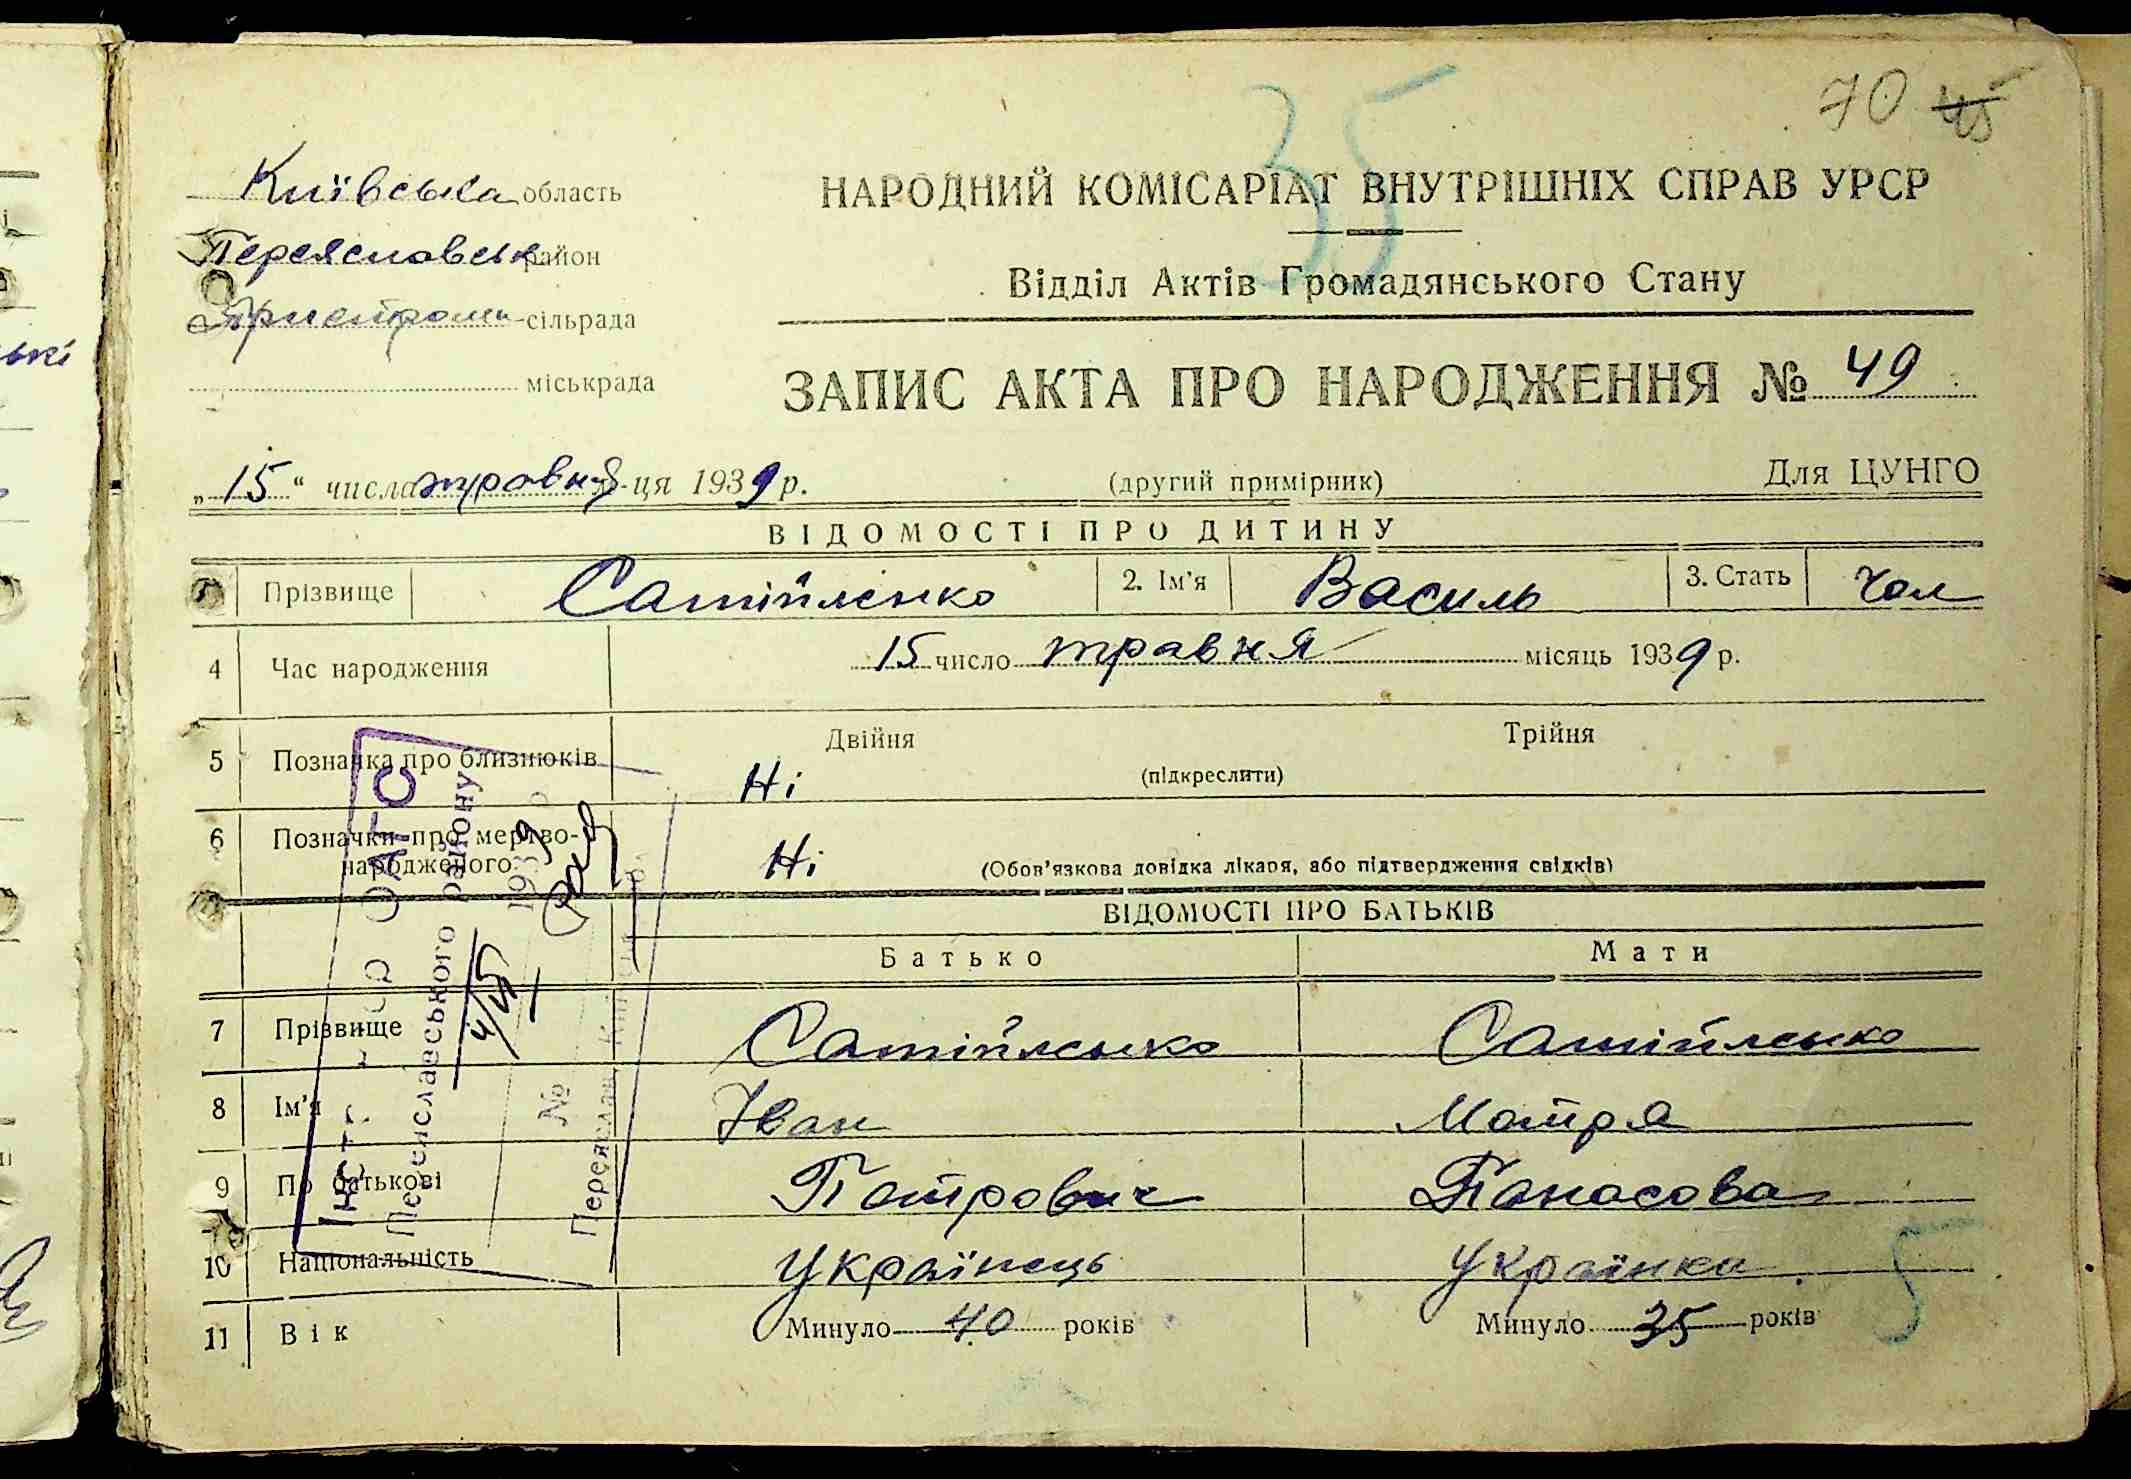 70 45
35
Київська область
Переяславськ район
Пристроми сільрада
міськрада
НАРОДНИЙ КОМІСАРІАТ ВНУТРІШНІХ СПРАВ УРСР
Відділ Актів Громадянського Стану
ЗАПИС АКТА ПРО НАРОДЖЕННЯ № 49
„15“ числа травня ця 1939 р. (другий примірник) Для ЦУНГО
ВІДОМОСТІ ПРО ДИТИНУ
Прізвище Сатійленко 2. Ім'я Василь 3. Стать Чол
4 Час народження 15 число травня місяць 1939 р.
5 Позначка про близнюків Двійня Трійня
Ні (підкреслити)
6 Позначки про мертво-
народженого Ні (Обов'язкова довідка лікаря, або підтвердження свідків)
ВІДОМОСТІ ПРО БАТЬКІВ
Батько Мати
7 Прізвище Сатійленко Сатійленко
8 Ім'я Іван Мотря
9 По батькові Петрович Панасова
10 Національність Українець Українка
11 Вік Минуло 40 років Минуло 35 років
5
ОАГС
Переяславського району
1939 р
№
Переяслав